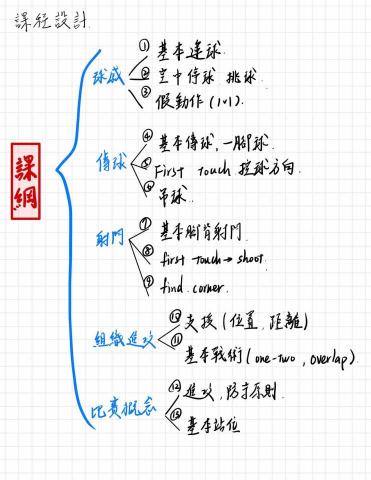 課程設計
課綱
球感
① 基本運球.
② 空中停球 挑球.
③ 假動作 (1v1).
傳球
④ 基本傳球, 一腳球.
⑤ First Touch 控球方向.
⑥ 吊球.
射門
⑦ 基本腳背射門.
⑧ first touch → shoot.
⑨ find corner.
組織進攻
⑩ 支援 (位置, 距離)
⑪ 基本戰術 (one-two, overlap).
比賽概念
⑫ 進攻, 防守原則.
⑬ 基本站位